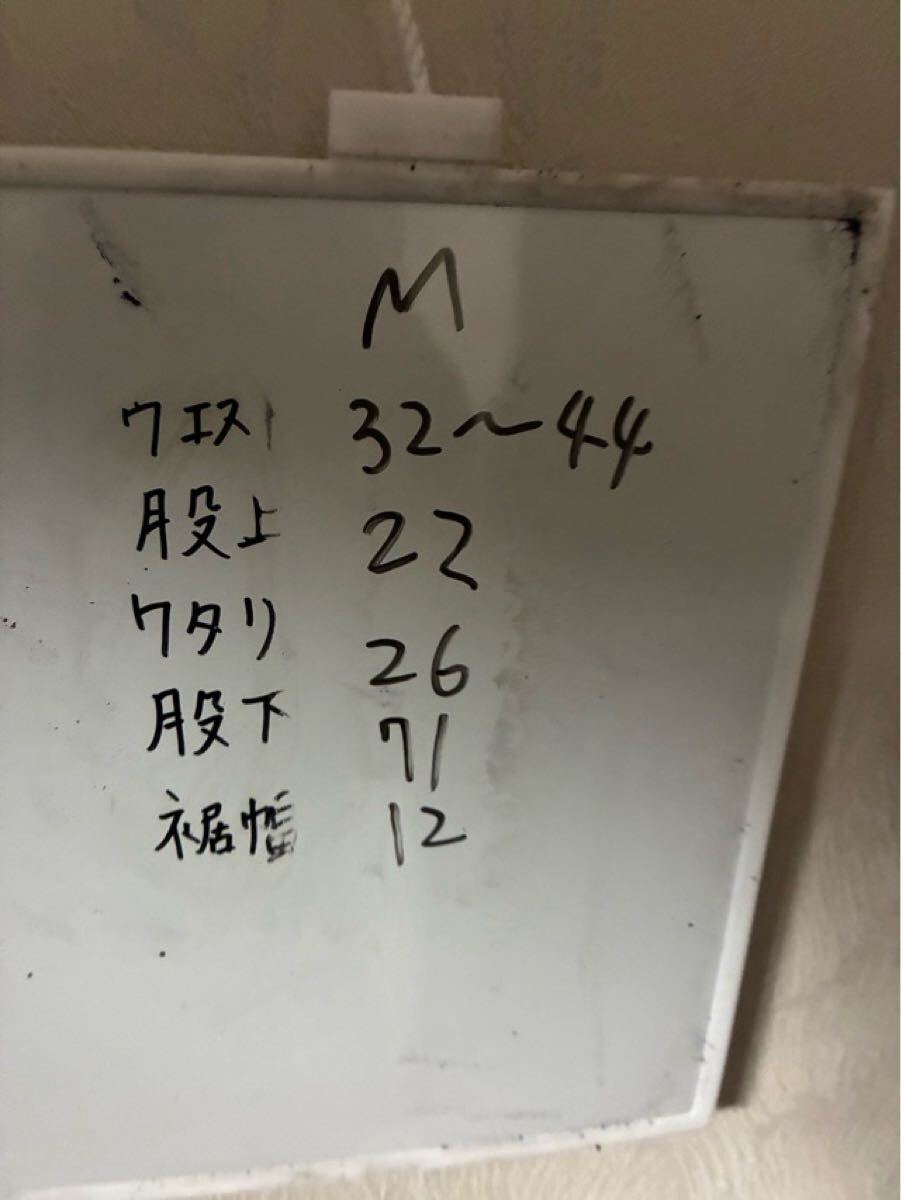 M
ウエスト 32〜44
股上 22
ワタリ 26
股下 71
裾幅 12